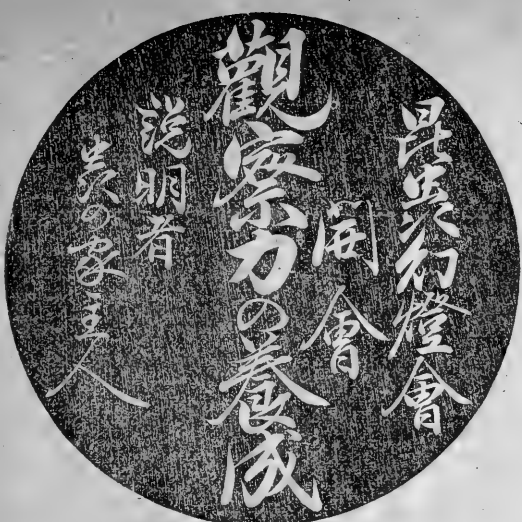 昆蟲幻燈會
開會
觀察力の養成
説明者
蟲の家主人